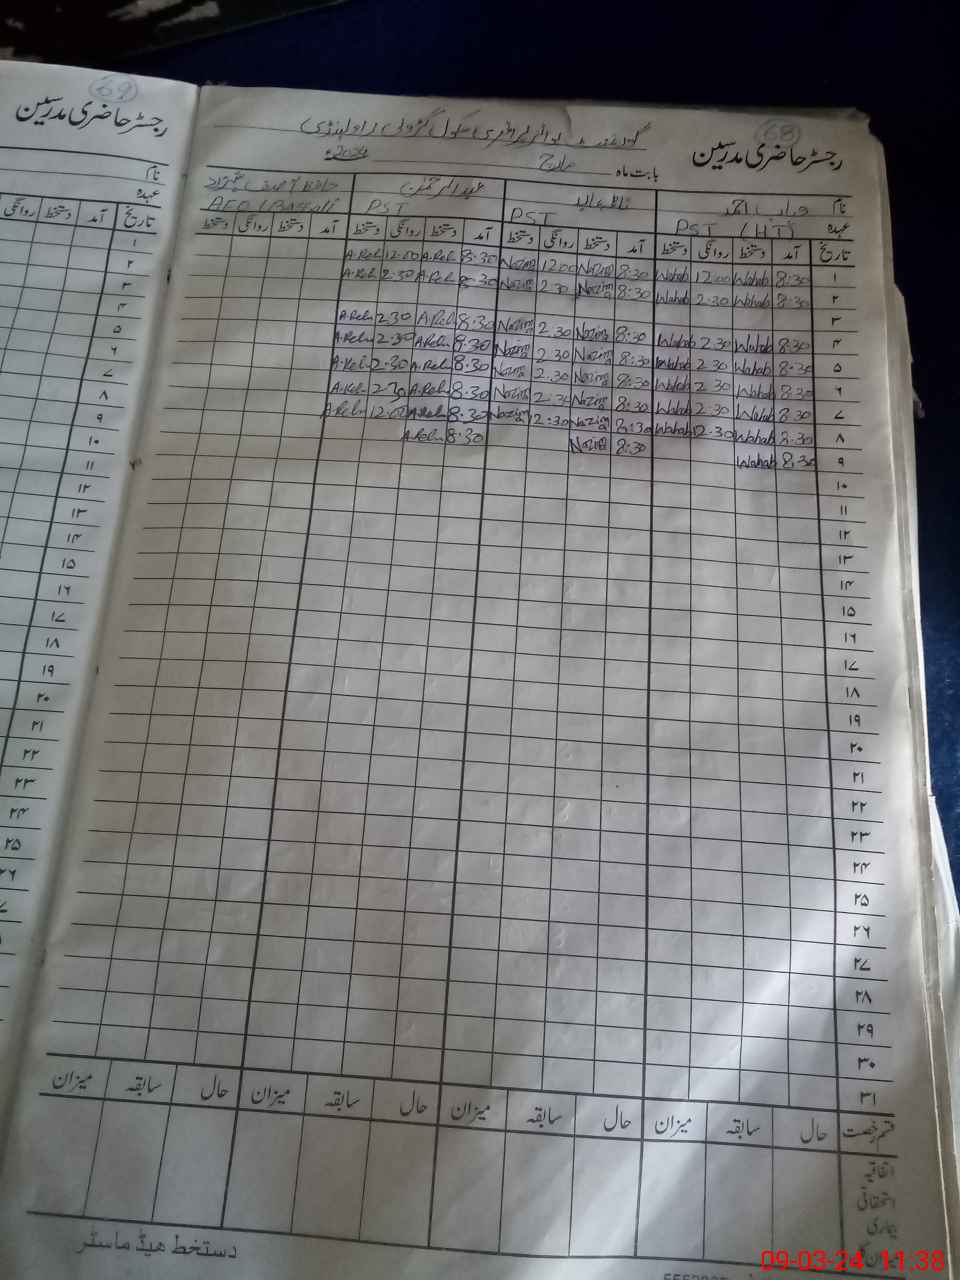 69
رجسٹر حاضری مدرسین
نام
عہدہ
تاریخ آمد دستخط روانگی
۱
۲
۳
۴
۵
۶
۷
۸
۹
۱۰
۱۱
۱۲
۱۳
۱۴
۱۵
۱۶
۱۷
۱۸
۱۹
۲۰
۲۱
۲۲
۲۳
۲۴
۲۵
۲۶
68
رجسٹر حاضری مدرسین
بابت ماہ مارچ 2024ء
نام وہاب احمد عبدالرحمٰن
عہدہ PST (HT) PST PST
تاریخ آمد دستخط روانگی دستخط آمد دستخط روانگی دستخط آمد دستخط روانگی دستخط آمد دستخط روانگی دستخط
۱ 8:30 Wahab 12:00 Wahab 8:30 Nazim 12:00 Nazim 8:30 A.Reh 12:00 A.Reh
۲ 8:30 Wahab 2:30 Wahab 8:30 Nazim 2:30 Nazim 8:30 A.Reh 2:30 A.Reh
۳
۴ 8:30 Wahab 2:30 Wahab 8:30 Nazim 2:30 Nazim 8:30 A.Reh 2:30 A.Reh
۵ 8:30 Wahab 2:30 Wahab 8:30 Nazim 2:30 Nazim 8:30 A.Reh 2:30 A.Reh
۶ 8:30 Wahab 2:30 Wahab 8:30 Nazim 2:30 Nazim 8:30 A.Reh 2:30 A.Reh
۷ 8:30 Wahab 2:30 Wahab 8:30 Nazim 2:30 Nazim 8:30 A.Reh 2:30 A.Reh
۸ Wahab 12:30 Wahab 8:30 Nazim 12:30 Nazim 8:30 A.Reh A.Reh
۹ 8:30 Wahab 8:30 Nazim 8:30 A.Reh
۱۰
۱۱
۱۲
۱۳
۱۴
۱۵
۱۶
۱۷
۱۸
۱۹
۲۰
۲۱
۲۲
۲۳
۲۴
۲۵
۲۶
۲۷
۲۸
۲۹
۳۰
۳۱
قسم رخصت حال سابقہ میزان حال سابقہ میزان حال سابقہ میزان حال سابقہ میزان
اتفاقیہ
استحقاقی
بیماری
دستخط ہیڈ ماسٹر
09-03-24 11:38